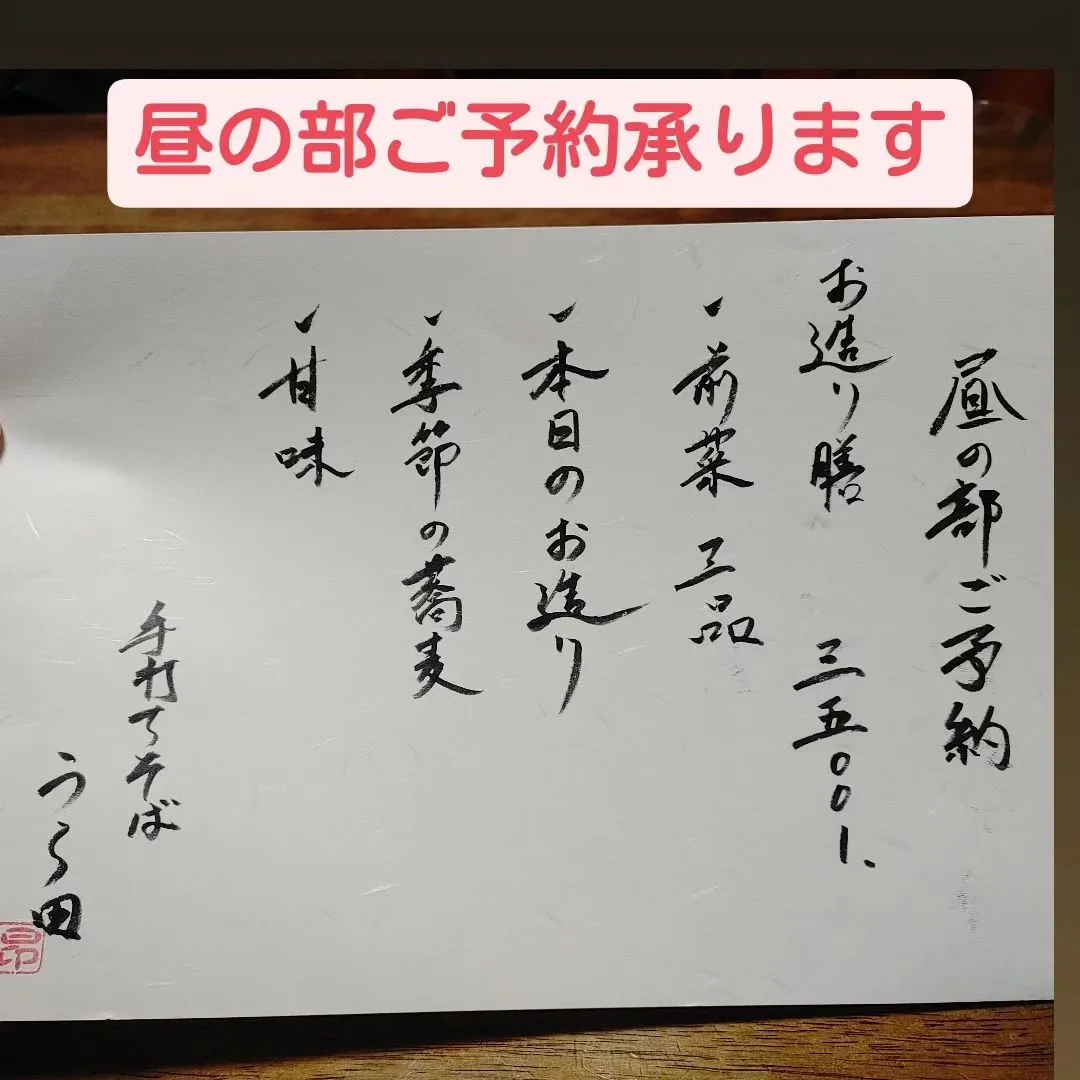 昼の部ご予約承ります
昼の部ご予約
お造り膳 三五〇〇I、
、前菜 三品
、本日のお造り
、季節の蕎麦
、甘味
手打ちそば
うら田
昂